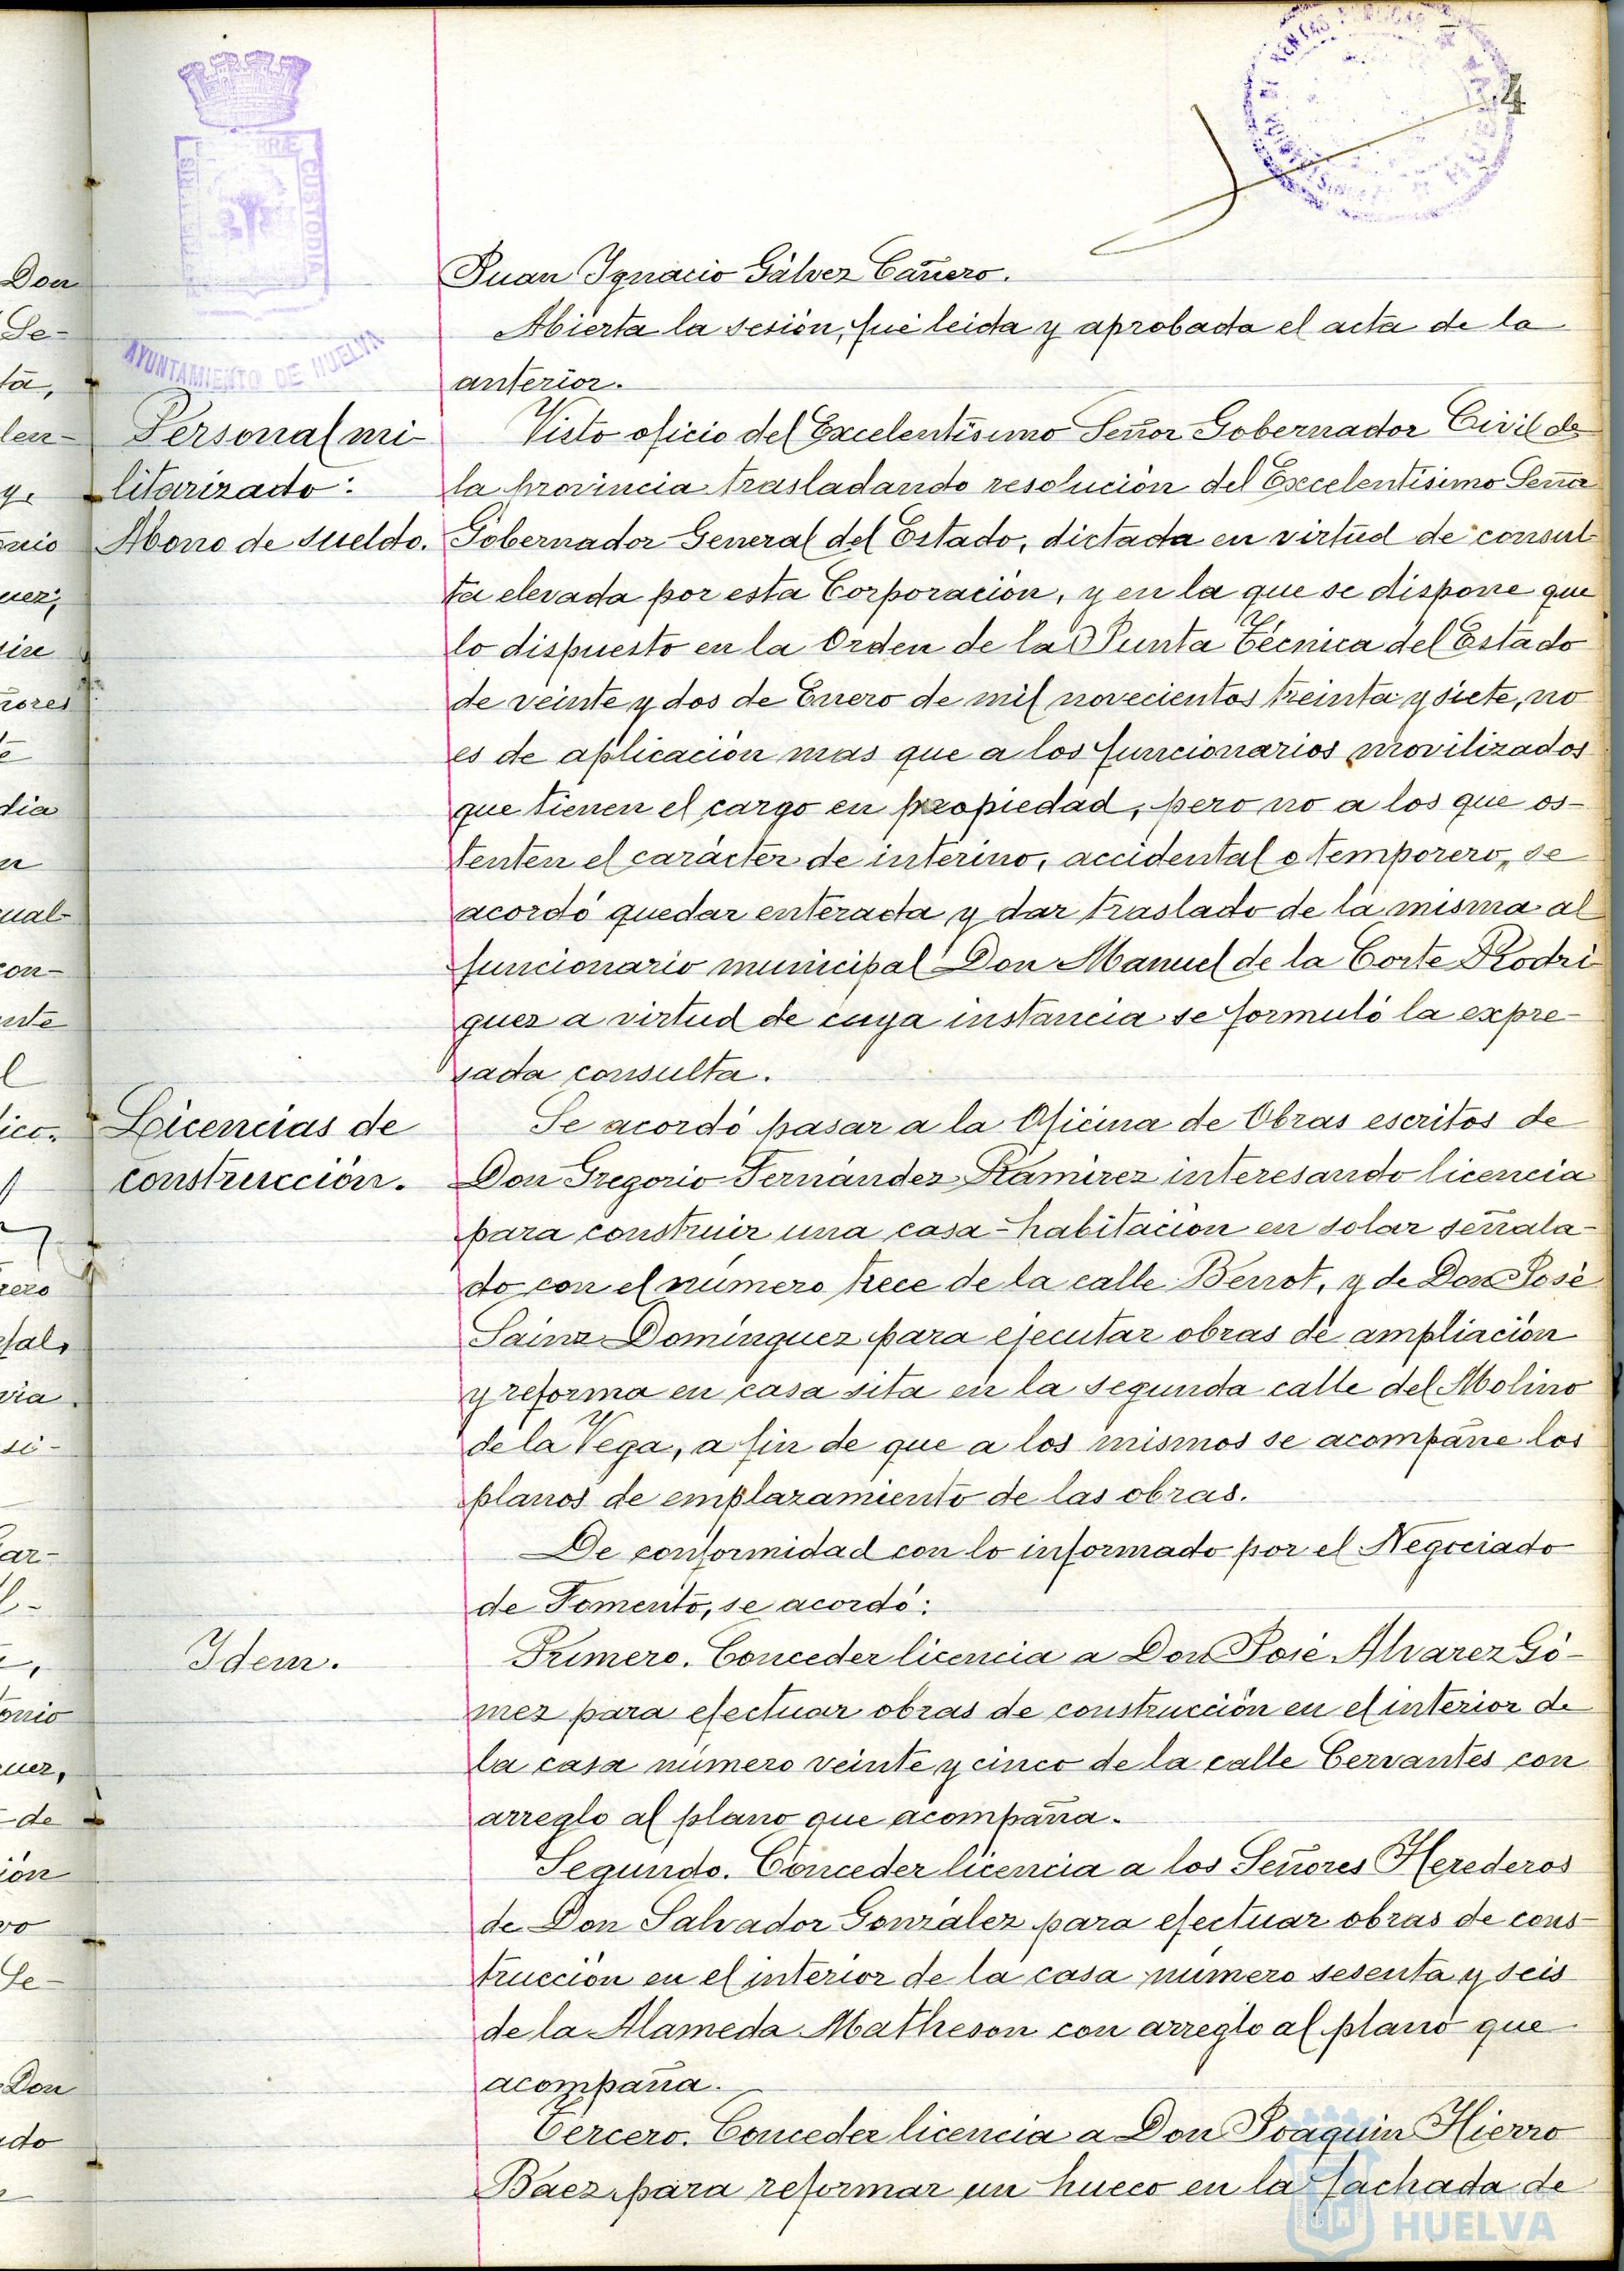 4
AYUNTAMIENTO DE HUELVA
CUSTODIA
Juan Ignacio Gálvez Cañero.
Abierta la sesión, fué leida y aprobada el acta de la
anterior.
Personal mi-
litarizado:
Abono de sueldo.
Visto oficio del Excelentísimo Señor Gobernador Civil de
la provincia trasladando resolución del Excelentísimo Señor
Gobernador General del Estado, dictada en virtud de consul-
ta elevada por esta Corporación, y en la que se dispone que
lo dispuesto en la Orden de la Junta Técnica del Estado
de veinte y dos de Enero de mil novecientos treinta y siete, no
es de aplicación mas que a los funcionarios movilizados
que tienen el cargo en propiedad, pero no a los que os-
tenten el carácter de interino, accidental o temporero, se
acordó quedar enterada y dar traslado de la misma al
funcionario municipal Don Manuel de la Corte Rodri-
guez a virtud de cuya instancia se formuló la expre-
sada consulta.
Licencias de
construcción.
Se acordó pasar a la Oficina de Obras escritos de
Don Gregorio Fernández Ramírez interesando licencia
para construir una casa-habitación en solar señala-
do con el número trece de la calle Berrot, y de Don José
Sainz Domínguez para ejecutar obras de ampliación
y reforma en casa sita en la segunda calle del Molino
de la Vega, a fin de que a los mismos se acompañe los
planos de emplazamiento de las obras.
De conformidad con lo informado por el Negociado
de Fomento, se acordó:
Idem.
Primero. Conceder licencia a Don José Alvarez Gó-
mez para efectuar obras de construcción en el interior de
la casa número veinte y cinco de la calle Cervantes con
arreglo al plano que acompaña.
Segundo. Conceder licencia a los Señores Herederos
de Don Salvador González para efectuar obras de cons-
trucción en el interior de la casa número sesenta y seis
de la Alameda Matheson con arreglo al plano que
acompaña.
Tercero. Conceder licencia a Don Joaquin Hierro
Baez para reformar un hueco en la fachada de
Ayuntamiento de
HUELVA